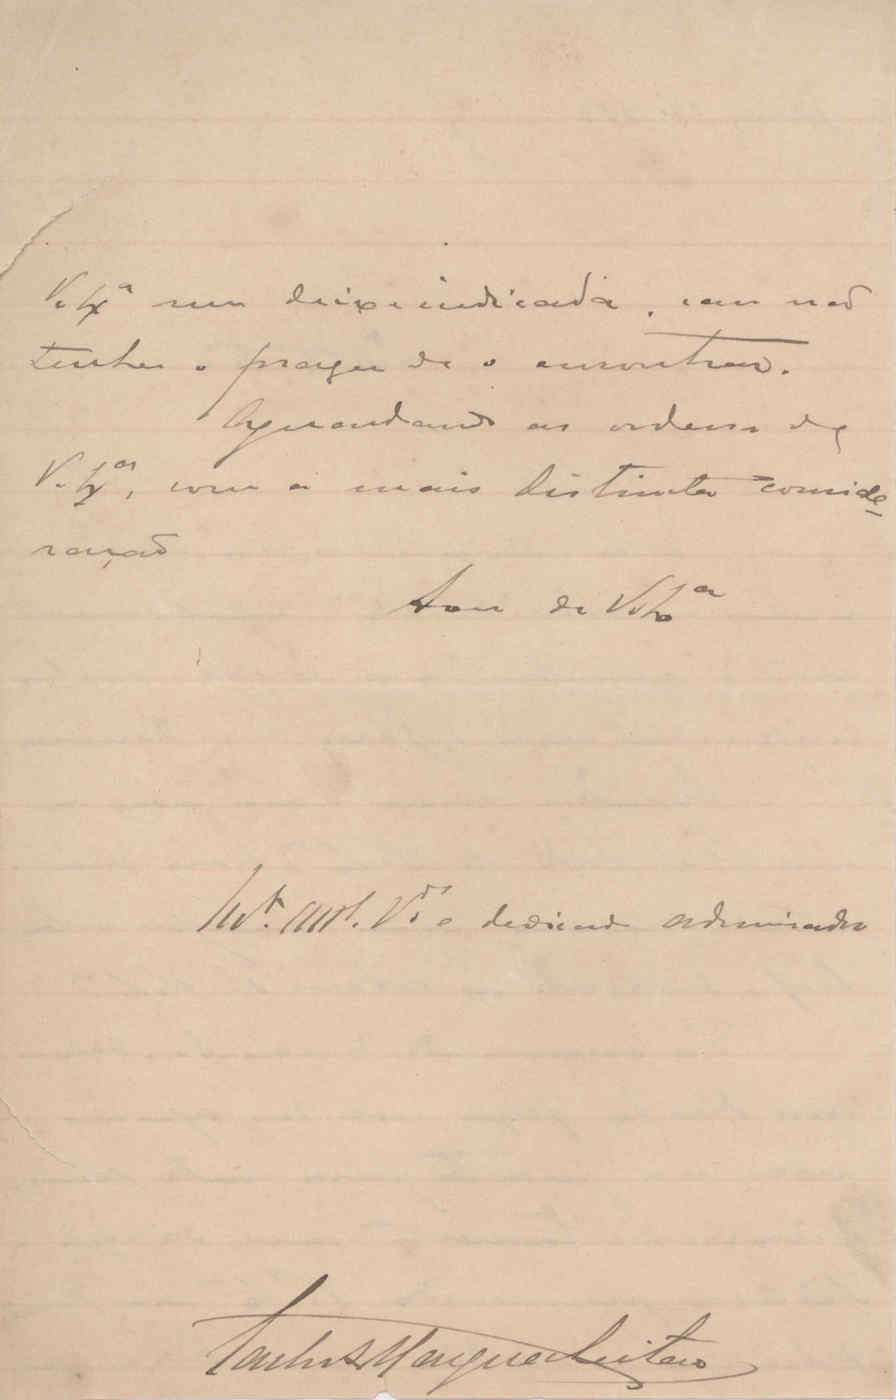 V. Exª me deixe indicada, caso não
tenha o prazer de o encontrar.
Aguardando as ordens de
V. Exª, com a mais distinta conside-
ração
Sou de V. Exª
Mt. Attº. Vdr e dedicado admirador
Carlos Marques Leitão